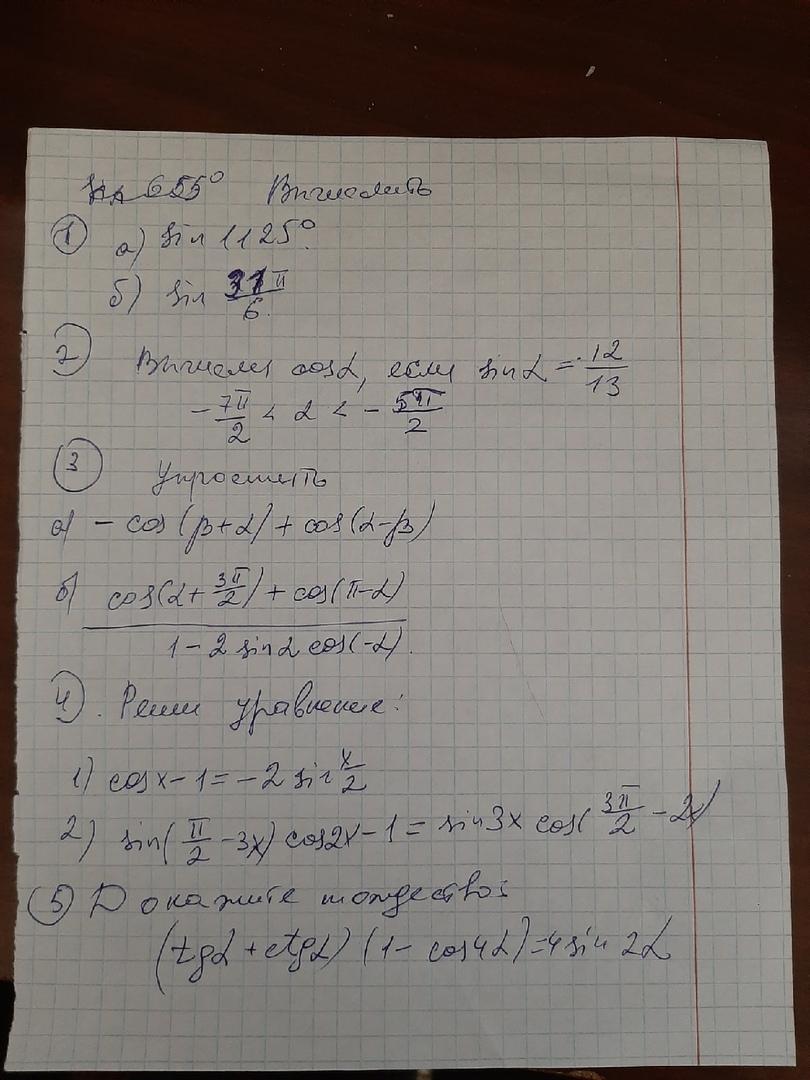 Вычислить
① а) sin 1125°.
б) sin 31π/6.
2) Вычисли cosα, если sinα = -12/13
-7π/2 < α < -5π/2
③ Упростить
а) - cos(β+α) + cos(α-β)
б) cos(α + 3π/2) + cos(π-α)
1 - 2 sinα cos(-α).
4). Реши уравнение:
1) cosx - 1 = -2 sin x/2
2) sin(π/2 - 3x) cos2x - 1 = sin3x cos(3π/2 - 2x)
⑤ Докажите тождество:
(tgα + ctgα) (1 - cos4α) = 4 sin 2α